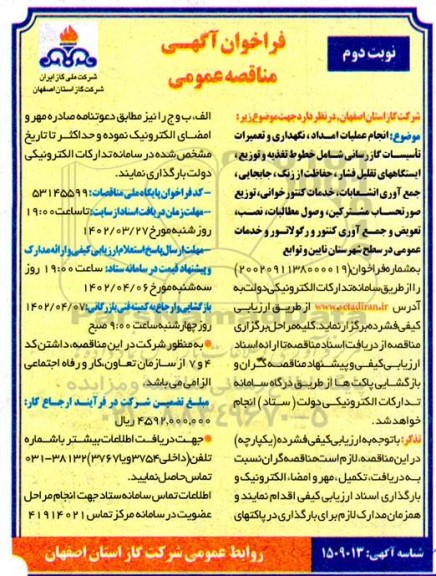 نوبت دوم
فراخوان آگهی
مناقصه عمومی
شرکت ملی گاز ایران
شرکت گاز استان اصفهان
شرکت گاز استان اصفهان، در نظر دارد جهت موضوع زیر:
موضوع: انجام عملیات امداد، نگهداری و تعمیرات
تأسیسات گازرسانی شامل خطوط تغذیه و توزیع،
ایستگاههای تقلیل فشار، حفاظت از زنگ، جابجایی،
جمع آوری انشعابات، خدمات کنتورخوانی، توزیع
صورتحساب مشترکین، وصول مطالبات، نصب،
تعویض و جمع آوری کنتور و رگولاتور و خدمات
عمومی در سطح شهرستان نایین و توابع
به شماره فراخوان (2002091138000019)
را از طریق سامانه تدارکات الکترونیکی دولت به
آدرس www.setadiran.ir از طریق ارزیابی
کیفی فشرده برگزار نماید. کلیه مراحل برگزاری
مناقصه از دریافت اسناد مناقصه تا ارائه اسناد
ارزیابی کیفی و پیشنهاد مناقصه گران و
بازگشایی پاکت ها از طریق درگاه سامانه
تدارکات الکترونیکی دولت (ستاد) انجام
خواهد شد.
تذکر: با توجه به ارزیابی کیفی فشرده (یکپارچه)
در این مناقصه، لازم است مناقصه گران نسبت
به دریافت، تکمیل، مهر و امضاء الکترونیک و
بارگذاری اسناد ارزیابی کیفی اقدام نمایند و
همزمان مدارک لازم برای بارگذاری در پاکتهای
الف، ب و ج را نیز مطابق دعوتنامه صادره مهر و
امضای الکترونیک نموده و حداکثر تا تاریخ
مشخص شده در سامانه تدارکات الکترونیکی
دولت بارگذاری نمایند.
-کد فراخوان پایگاه ملی مناقصات: 53145599
-مهلت زمان دریافت اسناد از سایت: تا ساعت 19:00
روز شنبه مورخ 1402/03/27
-مهلت ارسال پاسخ استعلام ارزیابی کیفی و ارائه مدارک
و پیشنهاد قیمت در سامانه ستاد: ساعت 19:00 روز
سه شنبه مورخ 1402/04/06
بازگشایی و ارجاع به کمیته فنی بازرگانی: 1402/04/07
روز چهارشنبه ساعت 9:00 صبح
به منظور شرکت در این مناقصه، داشتن کد
4 و 7 از سازمان تعاون، کار و رفاه اجتماعی
الزامی می باشد.
مبلغ تضمین شرکت در فرآیند ارجاع کار:
4592,000,000 ریال
جهت دریافت اطلاعات بیشتر با شماره
تلفن (داخلی 3754 ویا 3767) 38132-031
تماس حاصل نمایید.
اطلاعات تماس سامانه ستاد جهت انجام مراحل
عضویت در سامانه مرکز تماس 41914021
شناسه آگهی: 1509013
روابط عمومی شرکت گاز استان اصفهان